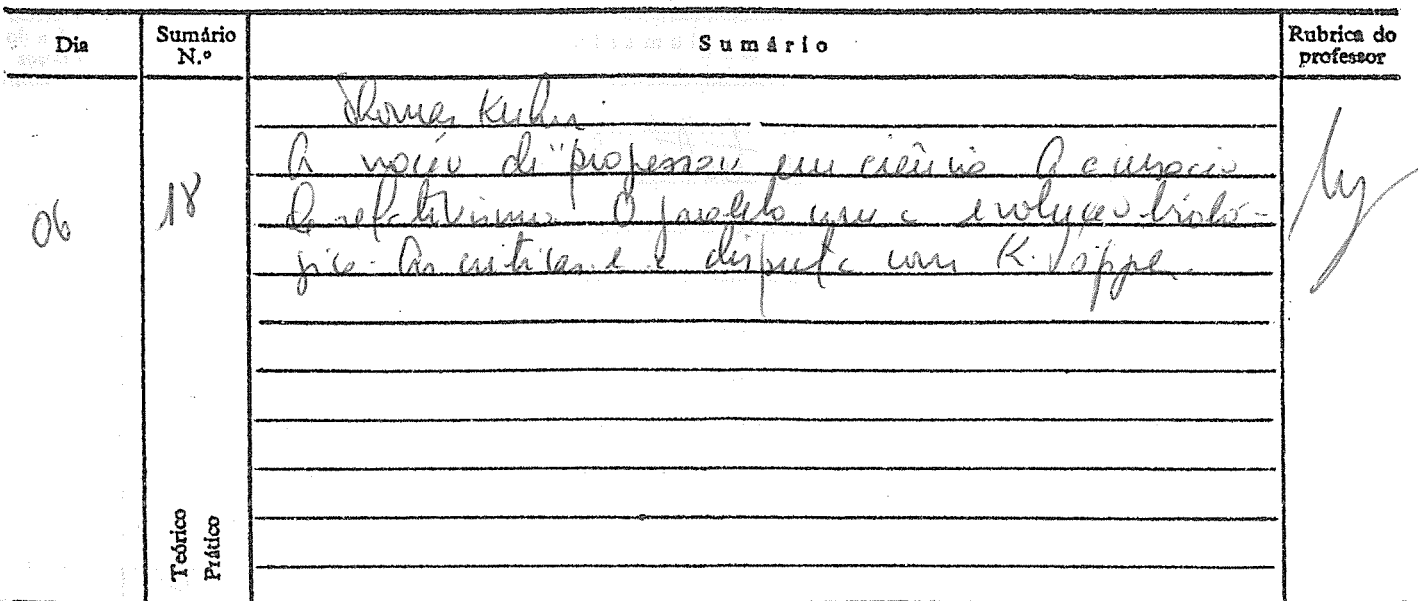 Dia
Sumário N.º
Sumário
Rubrica do professor
06
18
Thomas Kuhn.
A noção de "progresso" em ciência. A acusação
de relativismo. O paralelo com a evolução bioló-
gica. As críticas e a disputa com K. Popper.
Teórico
Prático